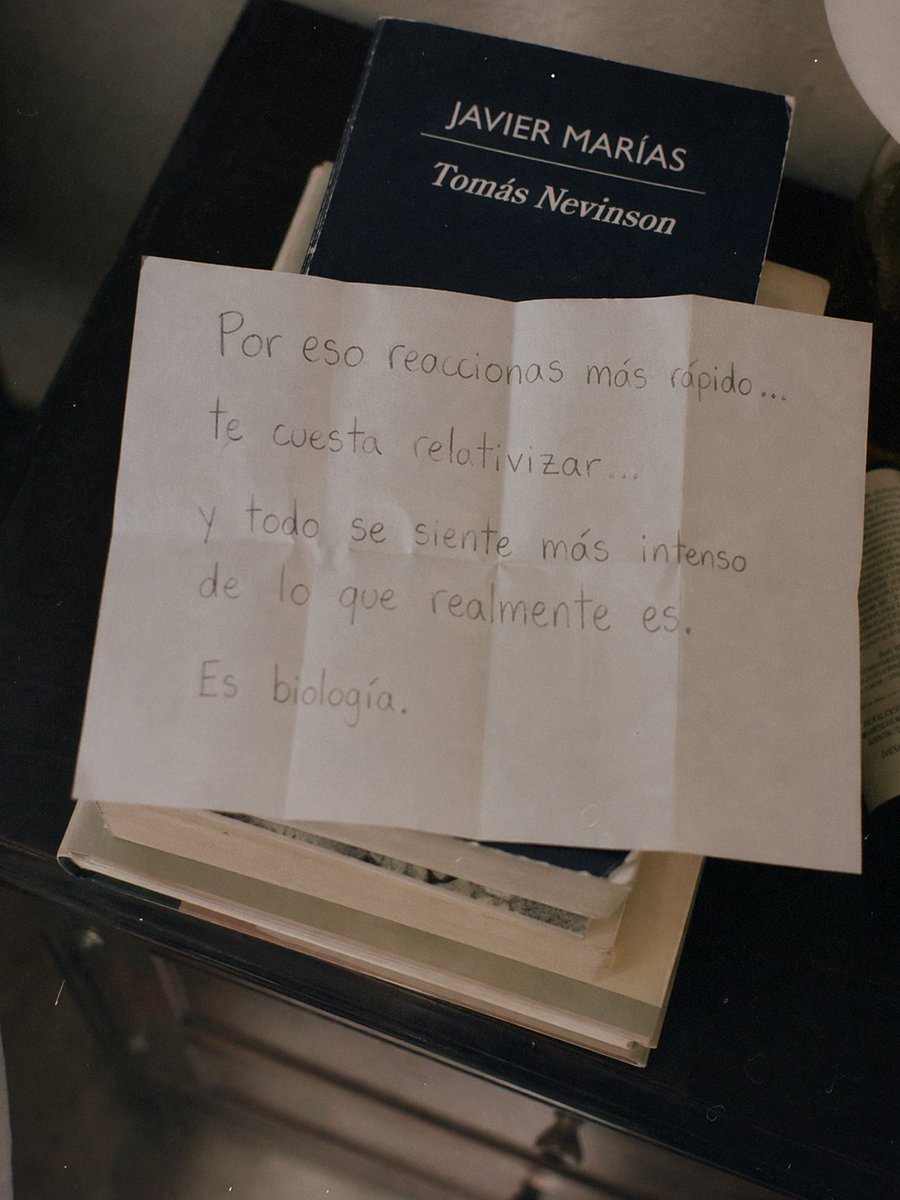 JAVIER MARÍAS
Tomás Nevinson
Por eso reaccionas más rápido...
te cuesta relativizar...
y todo se siente más intenso
de lo que realmente es.
Es biología.